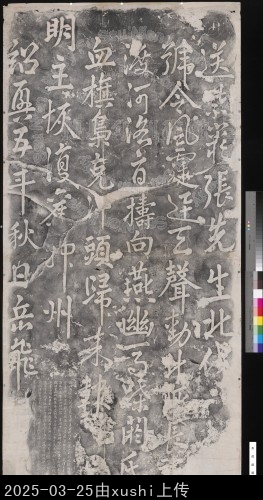 送紫巖張先生北伐
號令風霆迅天聲動北陬長驅
渡河洛直擣向燕幽馬蹀閼氏
血旗梟克汗頭歸來報
明主恢復舊神州
紹興五年秋日岳飛
2025-03-25由xushi上传